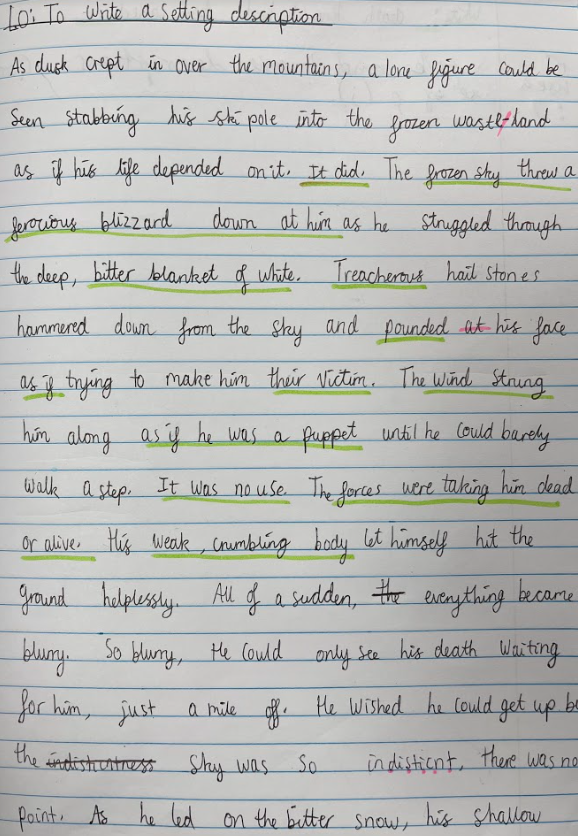 LO: To write a setting description
As dusk crept in over the mountains, a lone figure could be
seen stabbing his ski pole into the frozen waste-land
as if his life depended on it. It did. The frozen sky threw a
ferocious blizzard down at him as he struggled through
the deep, bitter blanket of white. Treacherous hail stones
hammered down from the sky and pounded at his face
as if trying to make him their victim. The wind strung
him along as if he was a puppet until he could barely
walk a step. It was no use. The forces were taking him dead
or alive. His weak, crumbling body let himself hit the
ground helplessly. All of a sudden, the everything became
blurry. So blurry, He could only see his death waiting
for him, just a mile off. He wished he could get up b
the indistinctness sky was so indisticnt, there was no
point. As he led on the bitter snow, his shallow